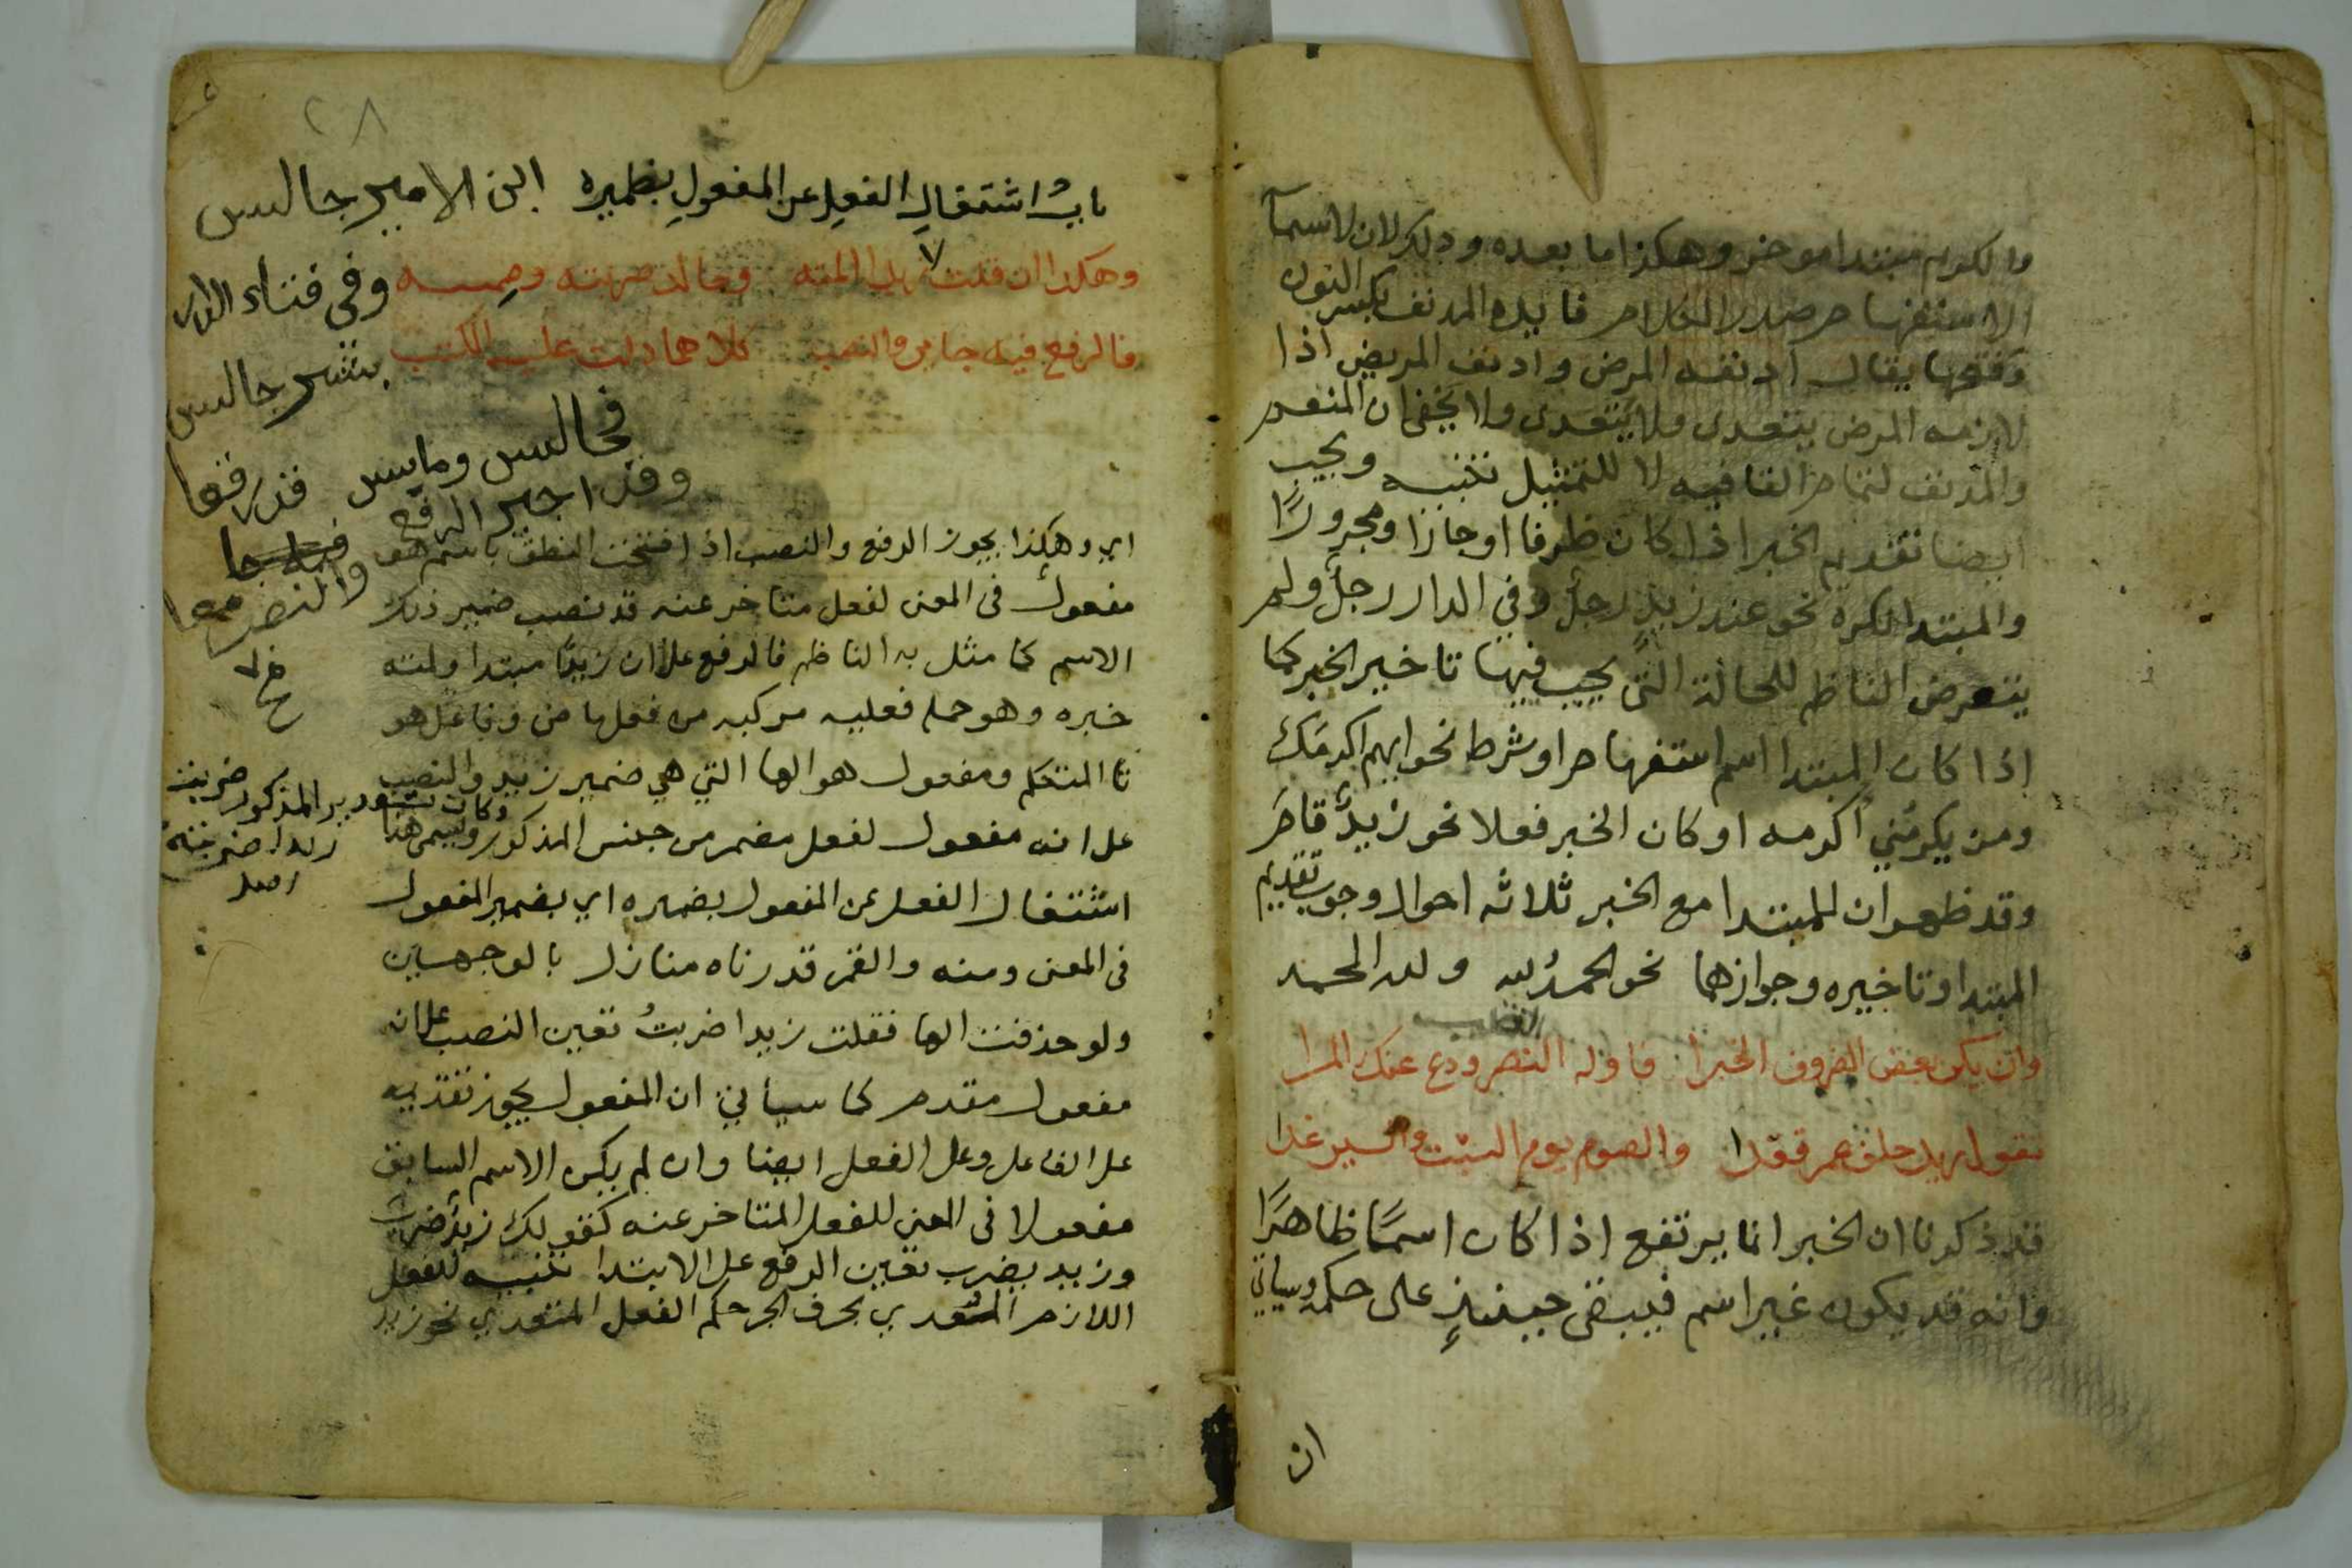 والكريم مبتدا موخر وهكذا ما بعده وذلك لان لاسما
الاستفهام صدر الكلام فايده المدنف بكسر النون
وفتحها يقال ادنفه المرض وادنف المريض اذا
لازمه المرض يتعدى ولا يتعدى ولا يخفى ان المنعم
والمدنف لتمام القافيه لا للتمثيل تنبيه ويجب
ايضا تقديم الخبر اذا كان ظرفا او جارا ومجرورًا
والمبتدا نكره نحو عند زيدٍ رجلٌ وفي الدار رجلٌ ولم
يتعرض الناظم للحالة التي يجب فيها تاخير الخبر كما
اذا كان المبتدا اسم استفهام او شرط نحو ايهم اكرمك
ومن يكرمني اكرمه او كان الخبر فعلا نحو زيدٌ قام
وقد ظهر ان للمبتدا مع الخبر ثلاثه احوال وجوب تقديم
المبتدا وتاخيره وجوازهما نحو الحمدُ لله ولله الحمد
وان يكن بعض الظروف الخبرا فاوله النصب ودع عنك المرا
تقول زيد خلف عمرو قعدا والصوم يوم السبت والسير غدا
قد ذكرنا ان الخبر انما يرتفع اذا كان اسمًا ظاهرًا
وانه قد يكون غير اسم فيبقى حينئذٍ على حكمه وسياتي
ان
٢٨
باب اشتغالِ الفعلِ عن المفعولِ بضميره
اين الامير جالس
وهكذا ان قلت زيد لمته وخالد ضربته وضمته
وفي فناء الدار
فالرفع فيه جايز والنصب كلاهما دلت عليه الكتب
بشر جالس
فجالس ومايس قد رفعا
وقد اجيز الرفع
والنصب معا
اي وهكذا يجوز الرفع والنصب اذا افتتحت النطق باسم هو
مفعول في المعنى لفعل متاخر عنه قد نصب ضمير ذلك
الاسم كما مثل به الناظم فالرفع على ان زيدًا مبتدا ولمته
خبره وهو جملة فعليه مركبه من فعلها من وفاعل هو
تا المتكلم ومفعول هو الها التي هي ضمير زيد والنصب
على انه مفعول لفعل مضمر من جنس المذكور ويسمى هذا
وكان تقدير المذكور ضربت
زيدا ضربته
اشتغال الفعل عن المفعول بضميره اي بضمير المفعول
في المعنى ومنه والقمر قدرناه منازل بالوجهين
ولو حذفت الها فقلت زيدا ضربتُ تعين النصب على انه
مفعول مقدم كما سياتي ان المفعول يجوز تقديمه
على الفاعل وعلى الفعل ايضا وان لم يكن الاسم السابق
مفعولا في المعنى للفعل المتاخر عنه كقولك زيدٌ ضرب
وزيد يضرب تعين الرفع على الابتدا تنبيه للفعل
اللازم المتعدي بحرف الجر حكم الفعل المتعدي نحو زيد